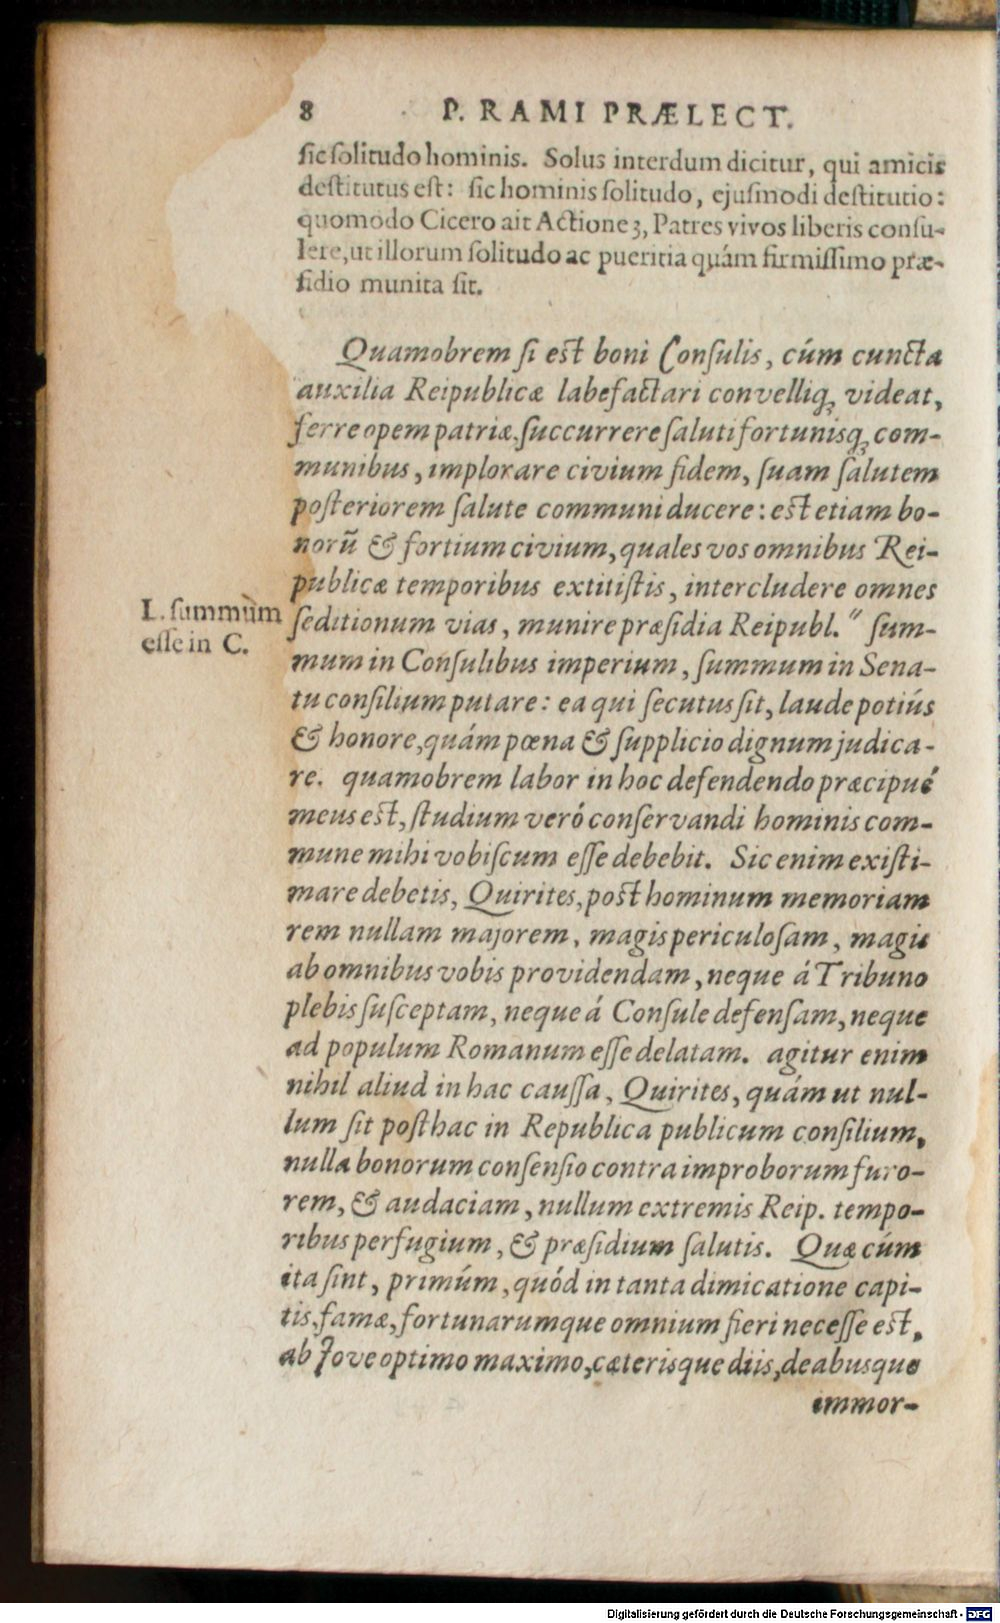 8 P. RAMI PRÆLECT.
sic solitudo hominis. Solus interdum dicitur, qui amicis
destitutus est: sic hominis solitudo, ejusmodi destitutio:
quomodo Cicero ait Actione 3, Patres vivos liberis consu-
lere, ut illorum solitudo ac pueritia quám firmissimo præ-
sidio munita sit.
Quamobrem si est boni Consulis, cúm cuncta
auxilia Reipublicæ labefactari convelliq; videat,
ferre opem patriæ, succurrere saluti fortunisq; com-
munibus, implorare civium fidem, suam salutem
posteriorem salute communi ducere: est etiam bo-
norũ & fortium civium, quales vos omnibus Rei-
publicæ temporibus extitistis, intercludere omnes
L. summùm
esse in C.
seditionum vias, munire præsidia Reipubl." sum-
mum in Consulibus imperium, summum in Sena-
tu consilium putare: ea qui secutus sit, laude potiús
& honore, quám pœna & supplicio dignum judica-
re. quamobrem labor in hoc defendendo præcipué
meus est, studium veró conservandi hominis com-
mune mihi vobiscum esse debebit. Sic enim existi-
mare debetis, Quirites, post hominum memoriam
rem nullam majorem, magis periculosam, magis
ab omnibus vobis providendam, neque á Tribuno
plebis susceptam, neque á Consule defensam, neque
ad populum Romanum esse delatam. agitur enim
nihil aliud in hac caussa, Quirites, quám ut nul-
lum sit posthac in Republica publicum consilium,
nulla bonorum consensio contra improborum furo-
rem, & audaciam, nullum extremis Reip. tempo-
ribus perfugium, & præsidium salutis. Quæ cúm
ita sint, primúm, quód in tanta dimicatione capi-
tis, famæ, fortunarumque omnium fieri necesse est,
ab Jove optimo maximo, cæterisque diis, deabusque
immor-
Digitalisierung gefördert durch die Deutsche Forschungsgemeinschaft - DFG